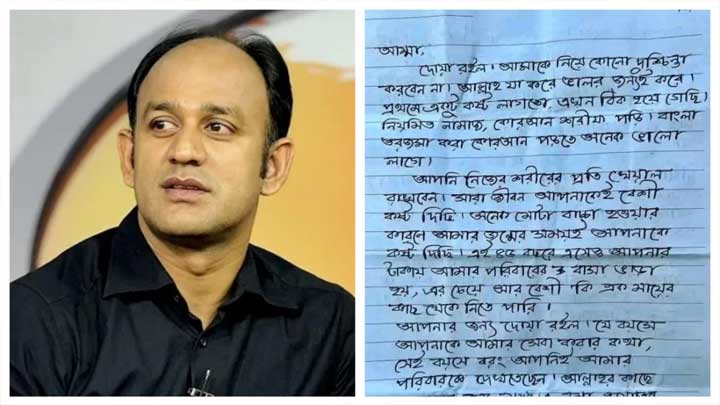 আম্মা,
দোয়া রইল। আমাকে নিয়ে কোনো দুশ্চিন্তা
করবেন না। আল্লাহ যা করে ভালর জন্যই করে।
প্রথমে একটু কষ্ট লাগতো, এখন ঠিক হয়ে গেছি।
নিয়মিত নামাজ, কোরআন শরীফ পড়ি। বাংলা
তরজমা করা কোরআন পড়তে অনেক ভালো
লাগে।
আপনি নিজের শরীরের প্রতি খেয়াল
রাখবেন। সারা জীবন আপনাকেই বেশী
কষ্ট দিছি। অনেক মোটা বাচ্চা হওয়ার
কারনে আমার জন্মের সময়ই আপনাকে
কষ্ট দিছি। এই ৪৫ বছরে এসেও আপনার
টাকায় আমার পরিবারের ও বাসা ভাড়া
হয়, এর চেয়ে আর বেশী কি এক মায়ের
কাছ থেকে নিতে পারি।
আপনার জন্য দোয়া রইল। যে বয়সে
আপনাকে আমার সেবা করার কথা,
সেই বয়সে বরং আপনিই আমার
পরিবারকে দেখতেছেন। আল্লাহর কাছে